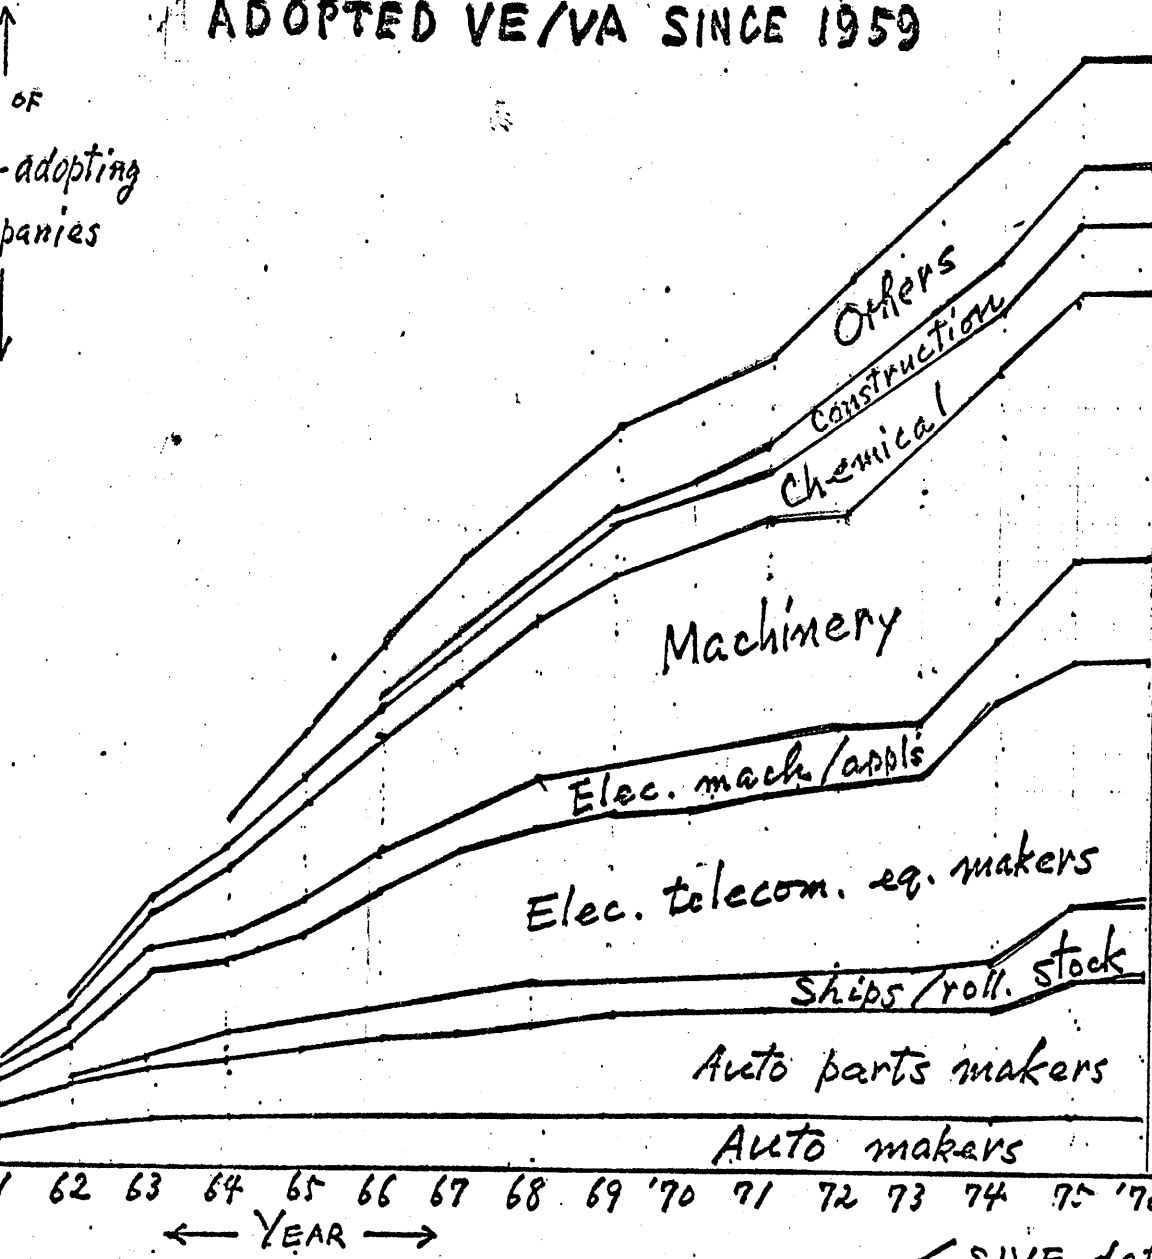 ADOPTED VE/VA SINCE 1959
OF
-adopting
panies
Others
Construction
Chemical
Machinery
Elec. mach/appls
Elec. telecom. eq. makers
Ships/roll. stock
Auto parts makers
Auto makers
62 63 64 65 66 67 68 69 '70 71 72 73 74 75 '7
← YEAR →